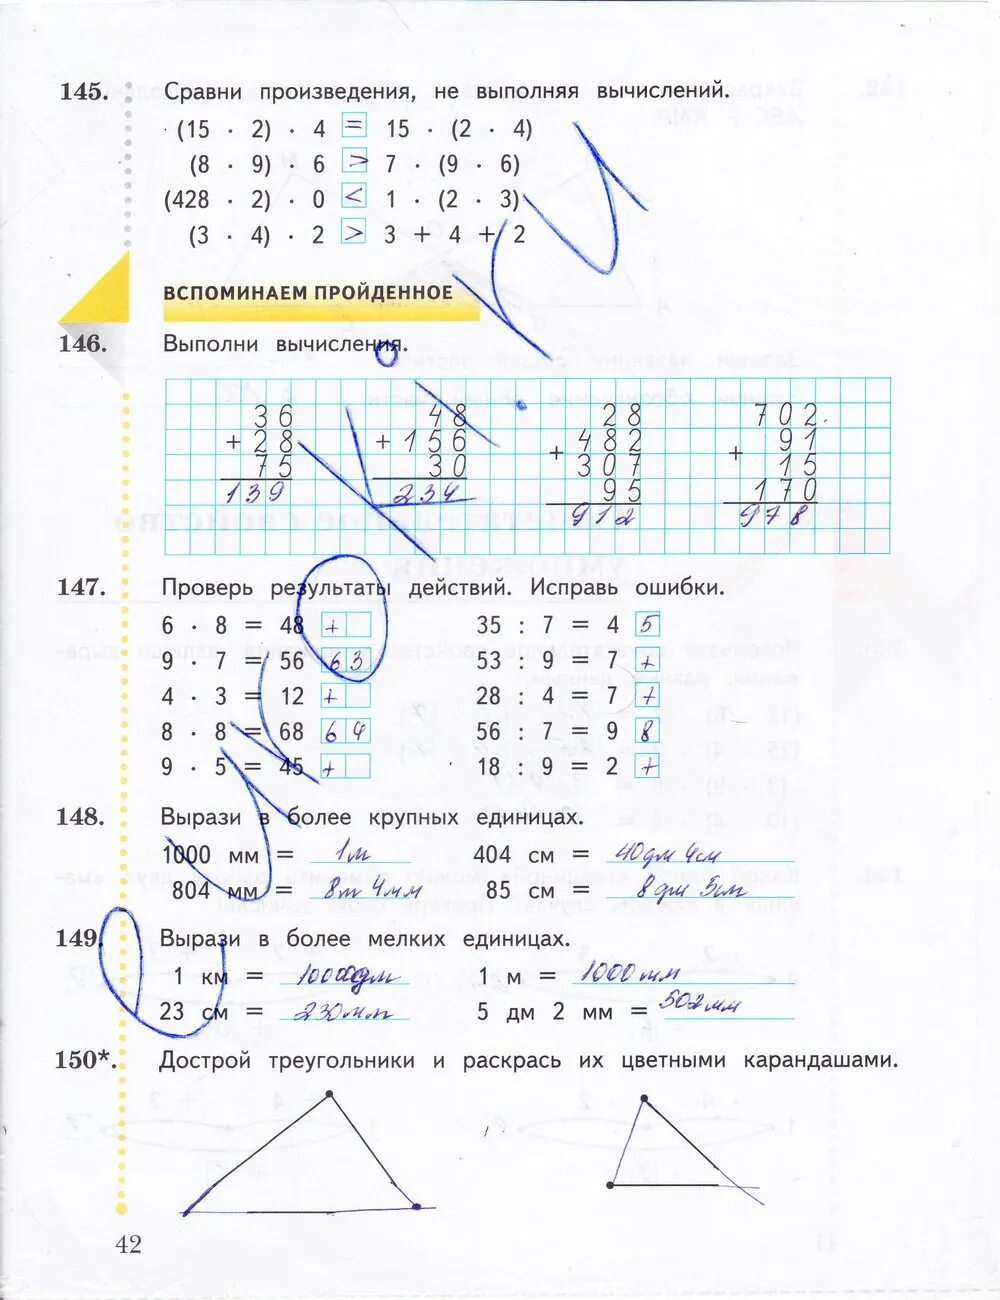 145. Сравни произведения, не выполняя вычислений.
(15 · 2) · 4 = 15 · (2 · 4)
(8 · 9) · 6 > 7 · (9 · 6)
(428 · 2) · 0 < 1 · (2 · 3)
(3 · 4) · 2 > 3 + 4 + 2
ВСПОМИНАЕМ ПРОЙДЕННОЕ
146. Выполни вычисления.
36 48 28 702
+ 28 + 156 + 482 + 91
75 30 307 15
139 234 95 170
912 978
147. Проверь результаты действий. Исправь ошибки.
6 · 8 = 48 + 35 : 7 = 4 5
9 · 7 = 56 63 53 : 9 = 7 +
4 · 3 = 12 + 28 : 4 = 7 +
8 · 8 = 68 64 56 : 7 = 9 8
9 · 5 = 45 + 18 : 9 = 2 +
148. Вырази в более крупных единицах.
1000 мм = 1м 404 см = 40дм 4см
804 мм = 8т 4мм 85 см = 8дм 5см
149. Вырази в более мелких единицах.
1 км = 10000дм 1 м = 1000мм
23 см = 230мм 5 дм 2 мм = 502мм
150*. Дострой треугольники и раскрась их цветными карандашами.
42